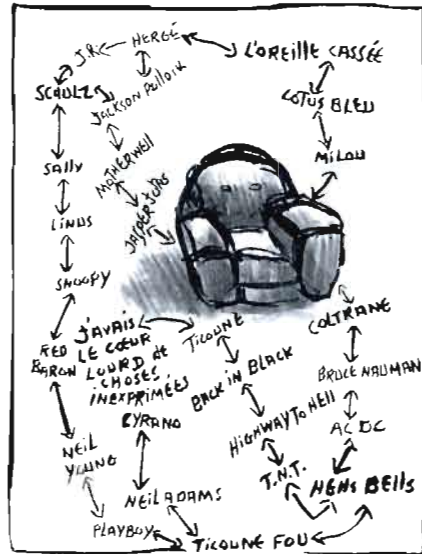 J.R.
HERGÉ
L'OREILLE CASSÉE
SCHULZ
JACKSON POLLOCK
LOTUS BLEU
MOTHERWELL
MILOU
SALLY
JASPER JOHNS
LINUS
SNOOPY
COLTRANE
J'AVAIS
LE CŒUR
LOURD de
CHOSES
INEXPRIMÉES
TICOUNE
RED
BARON
BACK IN BLACK
BRUCE NAUMAN
CYRANO
HIGHWAY TO HELL
AC DC
NEIL
YOUNG
T.N.T.
HELLS BELLS
NEIL ADAMS
PLAYBOY
TICOUNE FOU